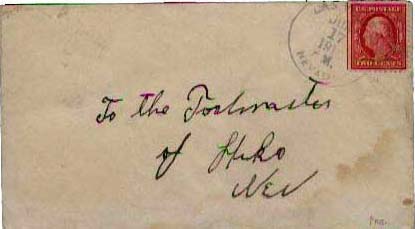 U.S. POSTAGE
TWO CENTS
17
M.
NEV
To the Postmaster
of Hiko
Nev